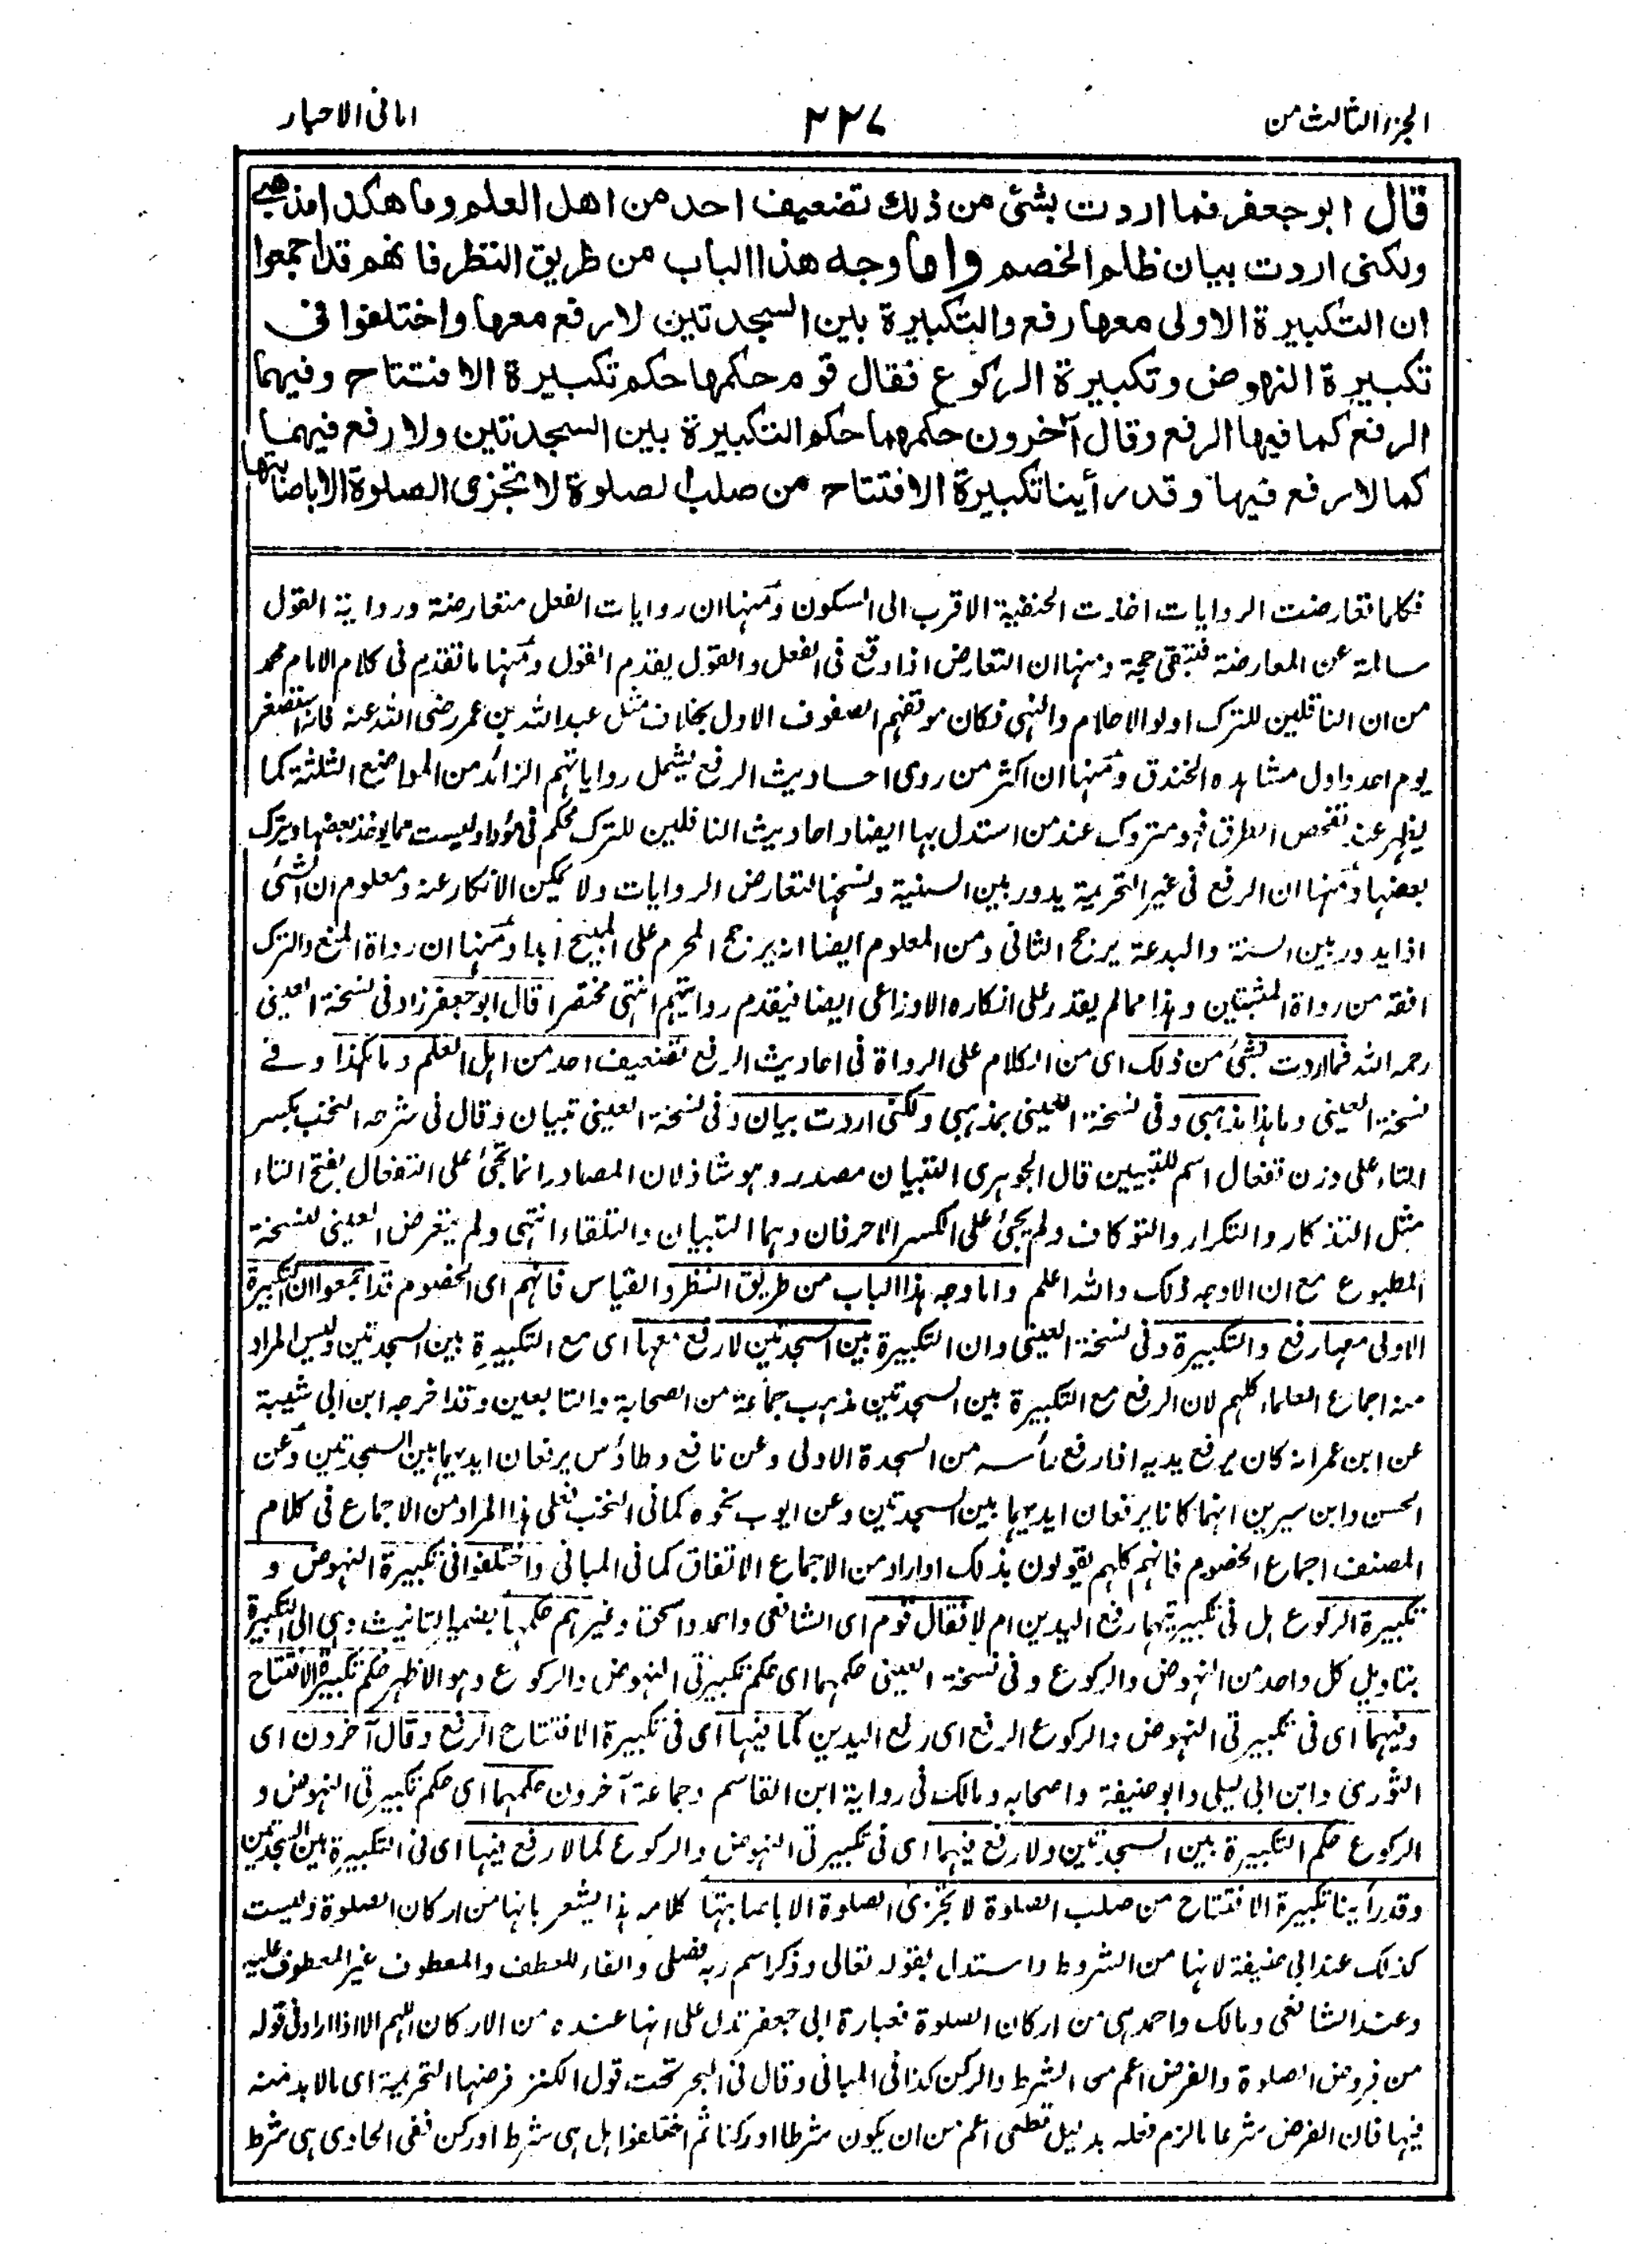 الجزء الثالث من
٢٢٧
امانی الاحبار
قال ابو جعفر فما اردت بشئ من ذلك تضعيف احد من اهل العلم وما هكذا مذهبي
ولكنی اردت بيان ظلم الخصم واما وجه هذا الباب من طريق النظر فانهم قد اجمعوا
ان التكبيرة الاولى معها رفع والتكبيرة بين السجدتين لا رفع معها واختلفوا فی
تكبيرة النهوض وتكبيرة الركوع فقال قوم حكمها حكم تكبيرة الافتتاح وفيهما
الرفع كما فيها الرفع وقال آخرون حكمهما حكم التكبيرة بين السجدتين ولا رفع فيهما
كما لا رفع فيها وقد رأينا تكبيرة الافتتاح من صلب الصلوة لا تجزی الصلوة الا باصابتها
فكلما تعارضت الروايات اخذت الحنفية الاقرب الی السكون ومنها ان روايات الفعل متعارضة ورواية القول
سالمة عن المعارضة فتبقی حجة ومنها ان التعارض اذا وقع فی الفعل والقول يقدم القول ومنها ما تقدم فی كلام الامام محمد
من ان الناقلين للترك اولو الاحلام والنهی فكان موقفهم الصفوف الاول بخلاف مثل عبد الله بن عمر رضی الله عنه فانه استصغر
يوم احد واول مشاهده الخندق ومنها ان اكثر من روی احاديث الرفع يشمل رواياتهم الزائد من المواضع الثلثة كما
يظهر عند تفحص الطرق فهو متروك عند من استدل بها ايضا واحاديث الناقلين للترك محكم فی مؤداه وليست مما يوخذ بعضها ويترك
بعضها ومنها ان الرفع فی غير التحريمة يدور بين السنية ونسخها لتعارض الروايات ولا يمكن الانكار عنه ومعلوم ان الشئ
اذا يدور بين السنة والبدعة يرجح الثانی ومن المعلوم ايضا انه يرجح المحرم علی المبيح ابدا ومنها ان رواة المنع والترك
افقه من رواة المثبتين وهذا مما لم يقدر علی انكاره الاوزاعی ايضا فيقدم روايتهم انتهی مختصرا قال ابو جعفر زاد فی نسخة العينی
رحمه الله فما اردت بشئ من ذلك ای من الكلام علی الرواة فی احاديث الرفع تضعيف احد من اهل العلم وما هكذا وفے
نسخة العينی وما هذا مذهبی وفی نسخة العينی بمذهبی ولكنی اردت بيان وفی نسخة العينی تبيان وقال فی شرحه النخب بكسر
التاء علی وزن تفعال اسم للتبيين قال الجوهری التبيان مصدر وهو شاذ لان المصادر انما تجئ علی التفعال بفتح التاء
مثل التذكار والتكرار والتوكاف ولم يجئ علی الكسر الا حرفان وهما التبيان والتلقاء انتهی ولم يتعرض العينی للنسخة
المطبوع مع ان الاوجه ذلك والله اعلم واما وجه هذا الباب من طريق النظر والقياس فانهم ای الخصوم قد اجمعوا ان التكبيرة
الاولی معها رفع والتكبيرة وفی نسخة العينی وان التكبيرة بين السجدتين لا رفع معها ای مع التكبيرة بين السجدتين وليس المراد
منه اجماع العلماء كلهم لان الرفع مع التكبيرة بين السجدتين مذهب جماعة من الصحابة والتابعين وقد اخرجه ابن ابی شيبة
عن ابن عمر انه كان يرفع يديه اذا رفع رأسه من السجدة الاولی وعن نافع وطاؤس يرفعان ايديهما بين السجدتين وعن
الحسن وابن سيرين انهما كانا يرفعان ايديهما بين السجدتين وعن ايوب نحوه كما فی النخب فعلی هذا المراد من الاجماع فی كلام
المصنف اجماع الخصوم فانهم كلهم يقولون بذلك او اراد من الاجماع الاتفاق كما فی المبانی واختلفوا فی تكبيرة النهوض و
تكبيرة الركوع هل فی تكبيرتيهما رفع اليدين ام لا فقال قوم ای الشافعی واحمد واسحق وغيرهم حكمها بضمير التانيث وهی الی التكبيرة
بتاويل كل واحد من النهوض والركوع وفی نسخة العينی حكمهما ای حكم تكبيرتی النهوض والركوع وهو الاظهر حكم تكبيرة الافتتاح
وفيهما ای فی تكبيرتی النهوض والركوع الرفع ای رفع اليدين كما فيها ای فی تكبيرة الافتتاح الرفع وقال آخرون ای
الثوری وابن ابی ليلی وابو حنيفة واصحابه ومالك فی رواية ابن القاسم وجماعة آخرون حكمهما ای حكم تكبيرتی النهوض و
الركوع حكم التكبيرة بين السجدتين ولا رفع فيهما ای فی تكبيرتی النهوض والركوع كما لا رفع فيها ای فی التكبيرة بين السجدتين
وقد رأينا تكبيرة الافتتاح من صلب الصلوة لا تجزئ الصلوة الا باصابتها كلامه هذا يشعر بانها من اركان الصلوة وليست
كذلك عند ابی حنيفة لانها من الشروط واستدل بقوله تعالی وذكر اسم ربه فصلی والفاء للعطف والمعطوف غير المعطوف عليه
وعند الشافعی ومالك واحمد هی من اركان الصلوة فعبارة ابی جعفر تدل علی انها عنده من الاركان اللهم الا اذا اراد فی قوله
من فروض الصلوة والفرض اعم من الشرط والركن كذا فی المبانی وقال فی البحر تحت قول الكنز فرضها التحريمة ای ما لا بد منه
فيها فان الفرض شرعا ما لزم فعله بدليل قطعی اعم من ان يكون شرطا او ركنا ثم اختلفوا هل هی شرط او ركن ففی الحاوی هی شرط